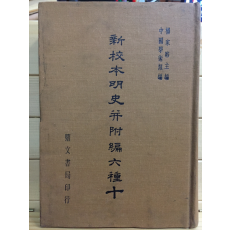 中國學術類編
楊家駱主編
新校本明史并附編六種十
鼎文書局印行